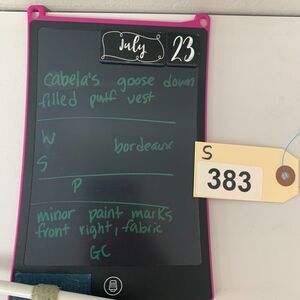 July 23
cabela's goose down
filled puff vest
W bordeaux
S
P
minor paint marks
front right, fabric
GC
S
383